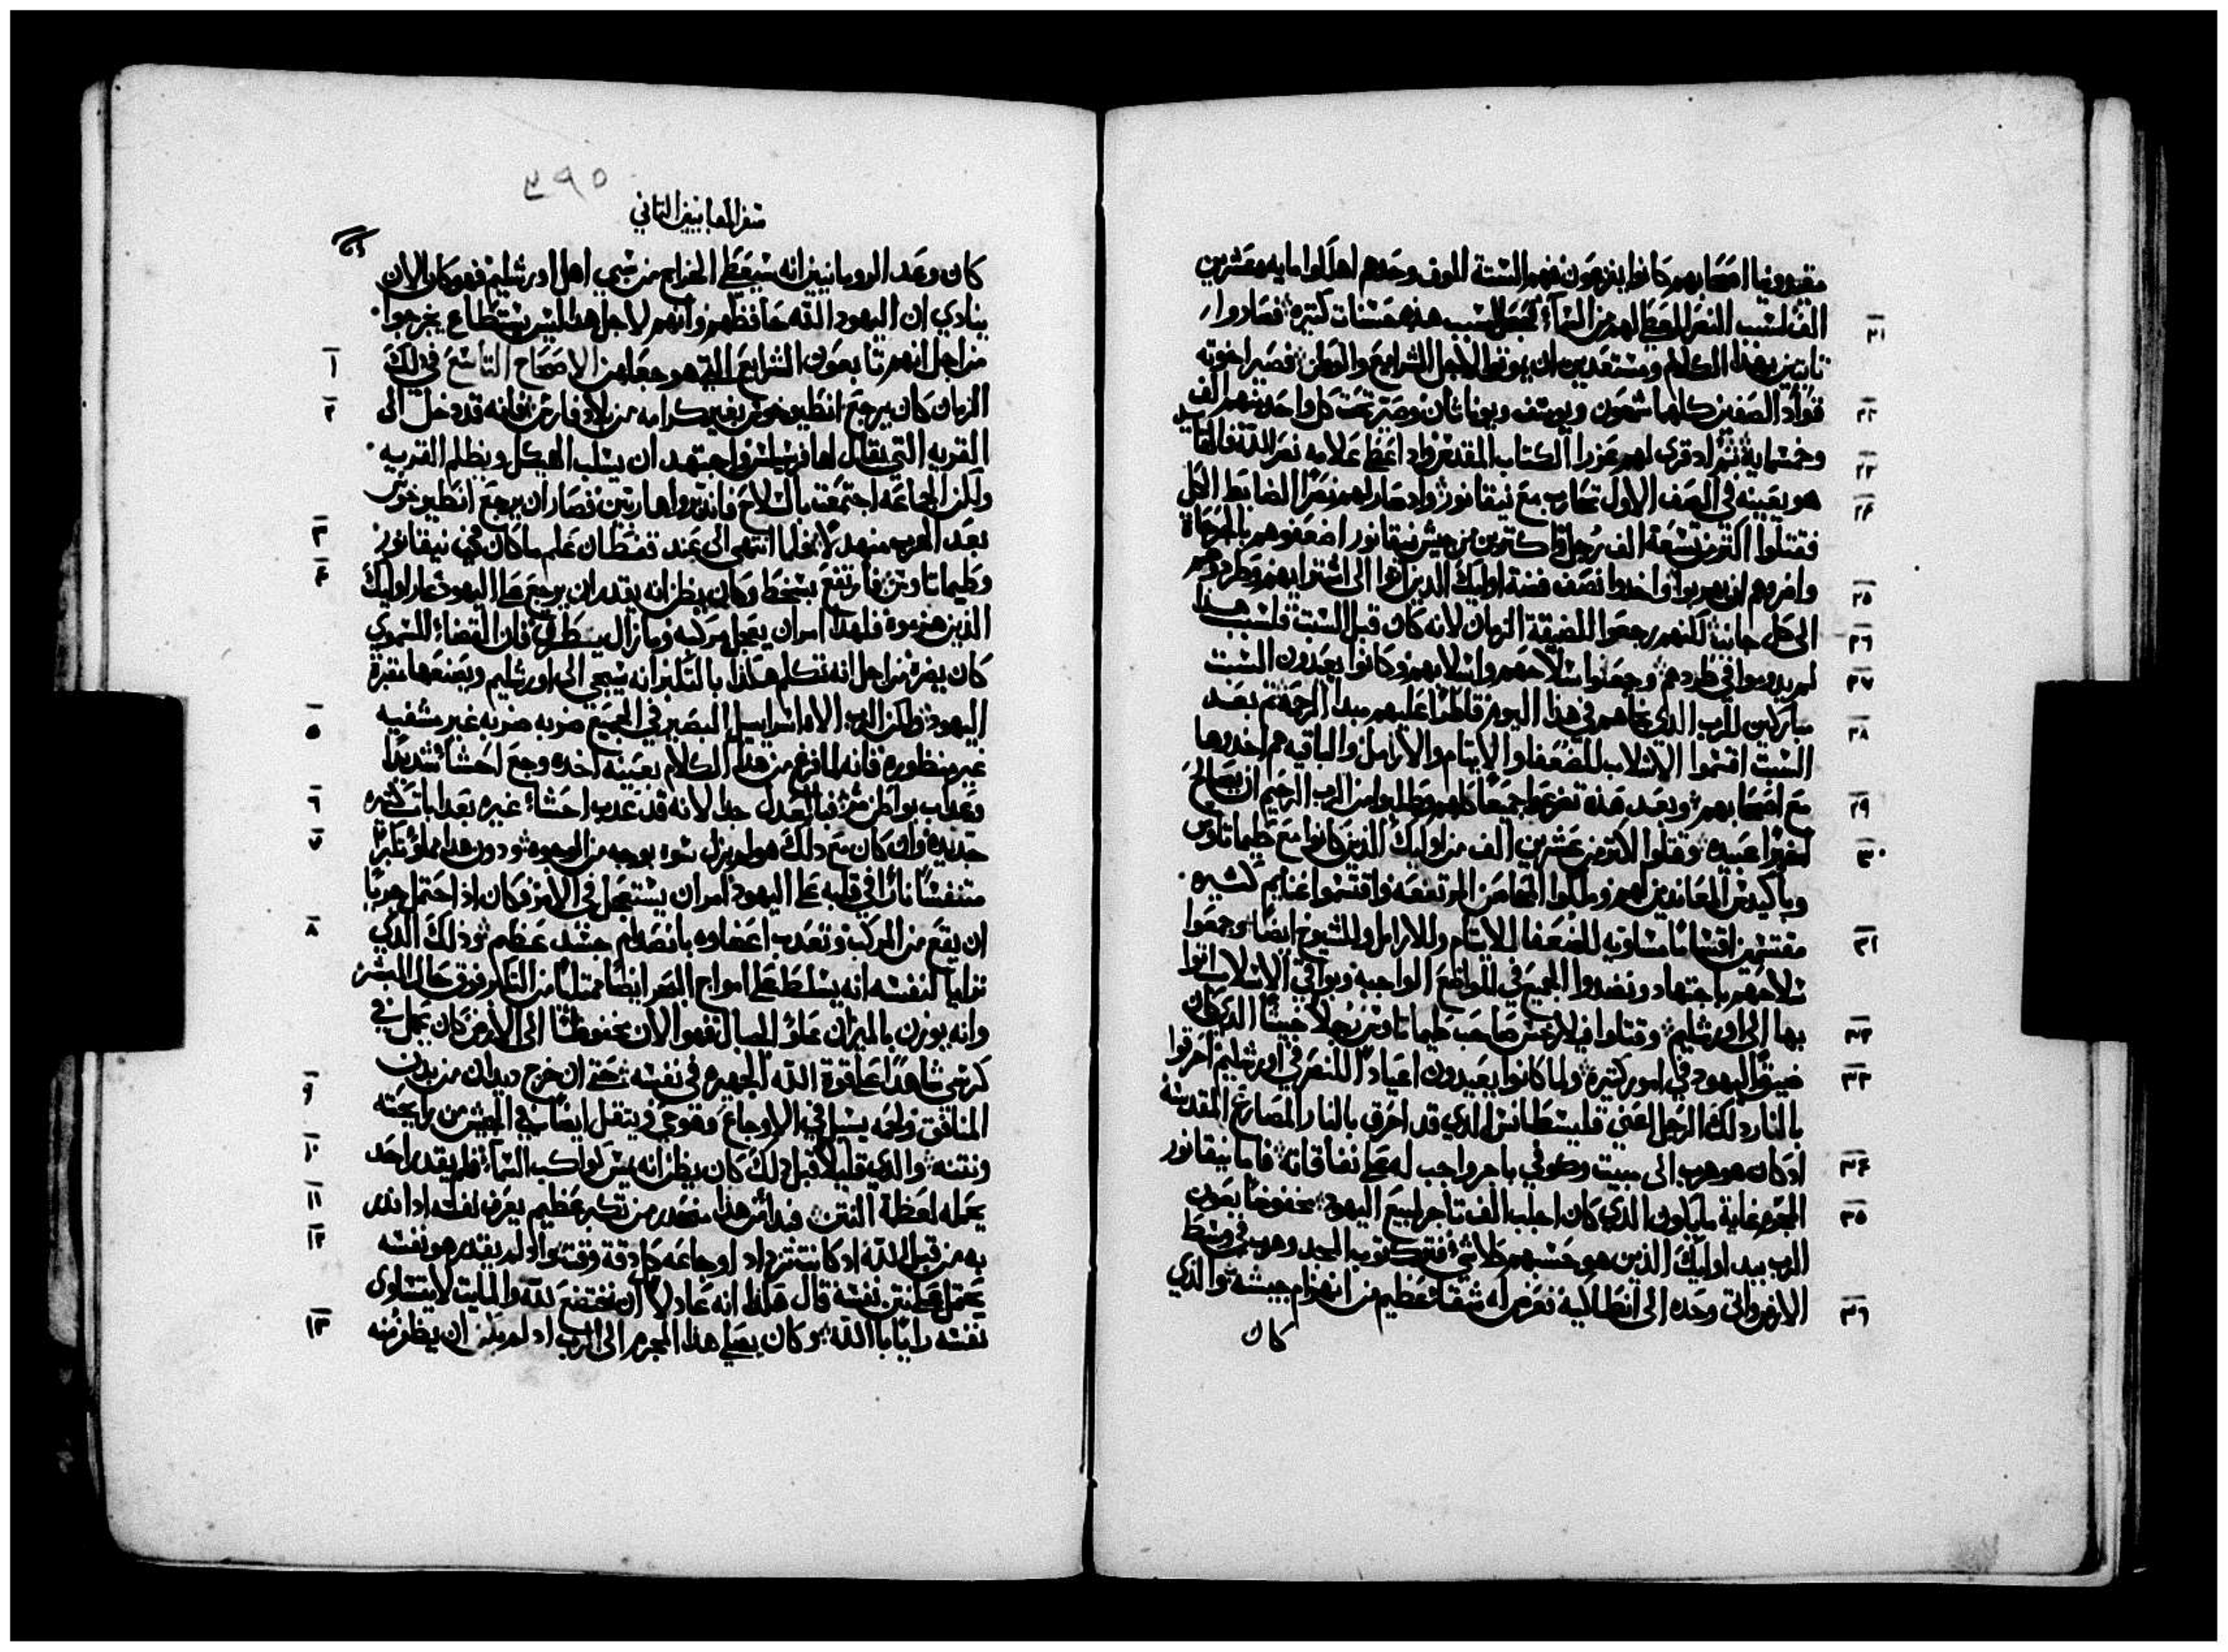 مقدونيا اصحابهم كانوا يذهبون فهم الستة الوف وحدهم اهلكوا مايه وعشرين
الف لسبب النصر المعطا لهم من السماء ولسبب هذه حسنات كثيره فصاروا
٢١ ثابتين بهذا الكلام ومستعدين ان يموتوا لاجل الشرايع والوطن فصير اخوته
٢٢ قواد الصفين كلهما شمعون ويوسف ويوناتان وصير تحت كل واحد منهم الف
٢٣ وخمسمايه ثم اد قري لهم عزرا الكتاب المقدس واد اعطا علامه نصر الله فالقايد
٢٤ هو بعينه في الصف الاول تحارب مع نيقانور واد صار لهم نصرا الضابط الكل
فقتلوا اكتر من تسعة الف رجل واكترين من جيش نيقانور اضعفوهم بالجراحاة
٢٥ وافروهم ان يهربوا واخدوا فضة اوليك الدين اتوا الى اشترايهم وطردوهم
٢٦ الى كل جانب لكنهم رجعوا لضيقة الزمان لانه كان قبل السبت فلسبب هدا
٢٧ لم يدوموا في طردهم وجمعوا سلاحهم واسلابهم وكانوا يعيدون السبت
٢٨ مباركين للرب الدي نجاهم في هدا اليوم قاطرا عليهم مبدا الرحمة ثم بعد
السبت اقتسموا الاسلاب للضعفا والايتام والارامل والباقيه هم اخدوها
٢٩ مع اصحابهم وبعد هده تضرعوا جميعا كلهم وطلبوا من الرب الرحيم ان يصالح
٣٠ اخيرا عبيده وقتلوا الاكتر من عشرين الف من اوليك الذين كانوا مع طيماتاوس
وباكيدس المعاندين لهم وملكوا الحصن المرتفعه واقتسموا غنايم كثيره
٣١ مقتسمين اقساما مساويه للضعفا للايتام وللارامل وللشيوخ ايضا وجمعوا
سلاحهم باجتهاد ونضدوا الجميع في المواضع الواجبه وبواقي الاسلاب اتوا
٣٢ بها الى اورشليم وقتلوا فيلارخس صاحب طيماتاوس رجلا خبيثا الدي كان
٣٣ ضيق اليهود في امور كثيره ولما كانوا يعيدون اعياد النصر في اورشليم احرقوا
بالنار دلك الرجل اعني قليسطانس الدي قد احرق بالنار المصاريع المقدسه
٣٤ اد كان هو هرب الى بيت وطوفي باجر واجب له على نفاقاته فاما نيقانور
٣٥ المجرم غاية ما يكون الدي كان اجلب الف تاجر لبيع اليهود مخفوضا بعون
الرب بيد اوليك الذين هو حسبهم كلا شي فترك توب المجد وهرب في وسط
٣٦ الارض واتى وحده الى انطاكيه نعرض له شقا عظيم من انهزام جيشه والدي
كان
٤٩٥
سفر المقابيين التاني
كان وعد الرومانيين انه سيعطي الخراج من سبي اهل اورشليم فهو كان الان
ينادي ان اليهود الله حافظهم وانهم لاجل هدا ليس يستطاع يجرحوا
١ من اجل انهم تابعون الشرايع التي هو جعلهن الاصحاح التاسع في دلك
٢ الزمان كان يرجع انطيوخوس بغير كرامه من بلاد فارس فانه قد دخل الى
القريه التي يقال لها فرسيلس واجتهد ان يسلب الهيكل ويظلم القريه
ولكن الجماعه اجتمعت بالسلاح فانديروا هاربين فصار ان يرجع انطيوخوس
٣ بعد الهرب منهدلا فلما انتهى الى عند قمطان علم ما كان في نيقانور
٤ وطيماتاوس فارتفع بسخط وكان يظن انه يقدر ان يرجع على اليهود عار اوليك
الذين هزموه فلهدا امر ان يعجل مركبه وما زال يسطرق فان القضاء السموي
كان يضره من اجل انه تكلم هكذا بالتكبر انه سيجي الى اورشليم ويصنعها مقبرة
٥ اليهود ولكن الرب الاه اسراييل البصير في الجميع ضربه ضربه غير مشفيه
غير منظوره فانه لما فرغ من هدا الكلام بعينه اخده وجع احشا شديدا
٦ وعداب بواطن مر فبالعدل جدا لانه قد عدب احشاء غيره بعدابات كثيره
٧ جديده وان كان مع دلك هو لم يزل سوء بوجه من الوجوه ودون هدا مملؤ تكبرا
متنفسا نارا في قلبه على اليهود امر ان يستعجل في الامر وكان اد احتمل هربا
٨ ان يقع من المركب وتعدب اعضاوه بانصدام جسد عظيم ودلك الدي
ترايا لنفسه انه يسلط على امواج البحر ايضا ممتليا من التكبر فوق حال البشر
وانه يوزن بالميزان علو الجبال فهو الان مخفوضا الى الارض كان يحمل في
كرسي شاهدا على قوة الله الجهيره في نفسه حتى ان خرج ديدان من بدن
٩ المنافق ولحمه يسيل في الاوجاع وهو حي ويتقل ايضا في الجيش من رايحته
١٠ ونتنه والدي قليلا قبل دلك كان يظن انه يمس كواكب السماء فلم يقدر احد
١١ يحمله لعظمة النتن فبدا من هدا منحدر من تكبر عظيم يعرف نفسه اد اندر
١٢ به من قبل الله اد كانت تزداد اوجاعه كل دقة وقت واد لم يقدر هو نفسه
يحتمل نتن نفسه قال هكذا انه عادلا ان نخضع لله والمايت لا يتساوى
١٣ نفسه رايا باالله وكان يصلي هدا المجرم الى الرب اد لم يكن ان يظفر منه